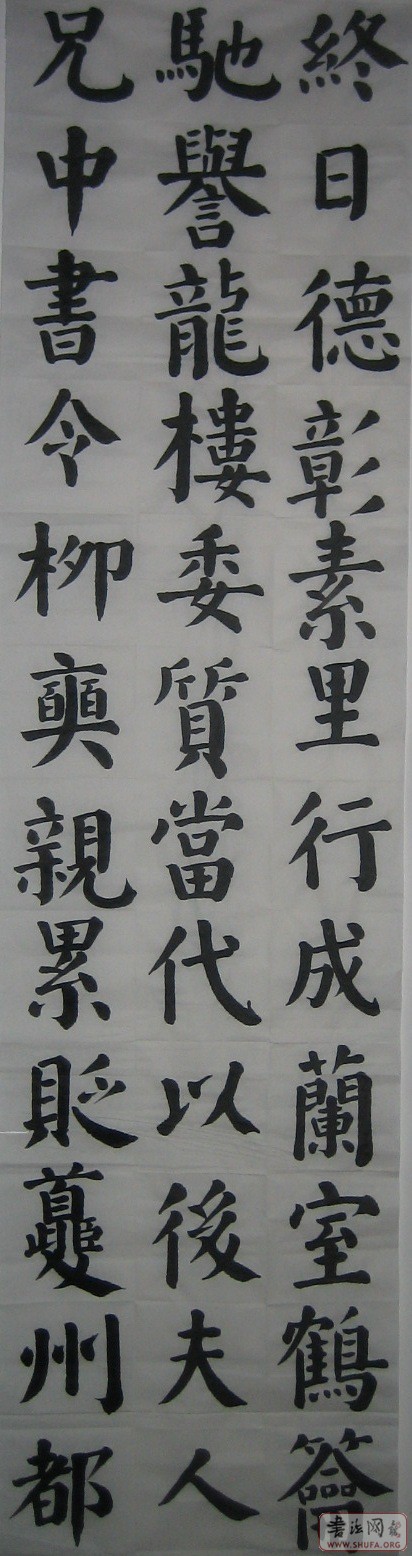 終日德彰素里行成蘭室鶴籥
馳譽龍樓委質當代以後夫人
兄中書令柳奭親累貶夔州都
書法网
WWW.SHUFA.ORG